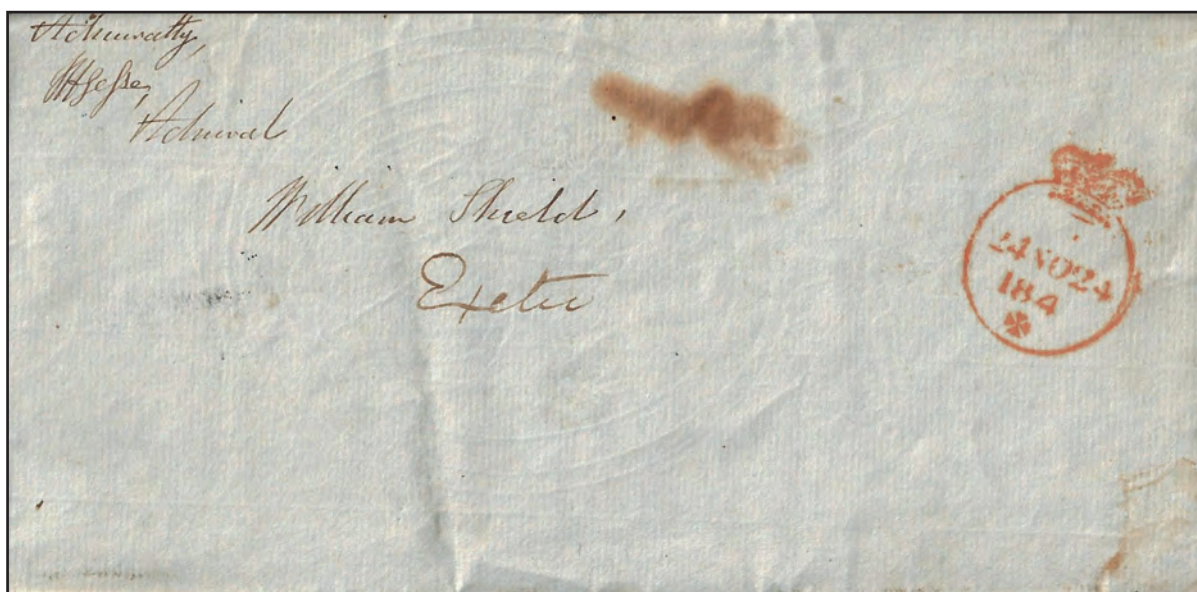 Admiralty,
JHJesse,
Admiral
William Shield,
Exeter
24NO24
184